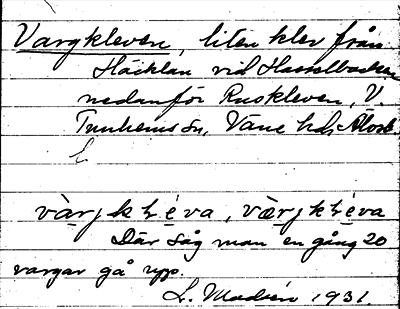 Vargkleven, liten klev från
Häcklan vid Hasselbacken
nedanför Ruskleven, V.
Tunhems sn, Väne hd, Älvsb.
l
vàrjkléva,værjkléva
Där såg man en gång 20
vargar gå upp.
L. Modin 1931.